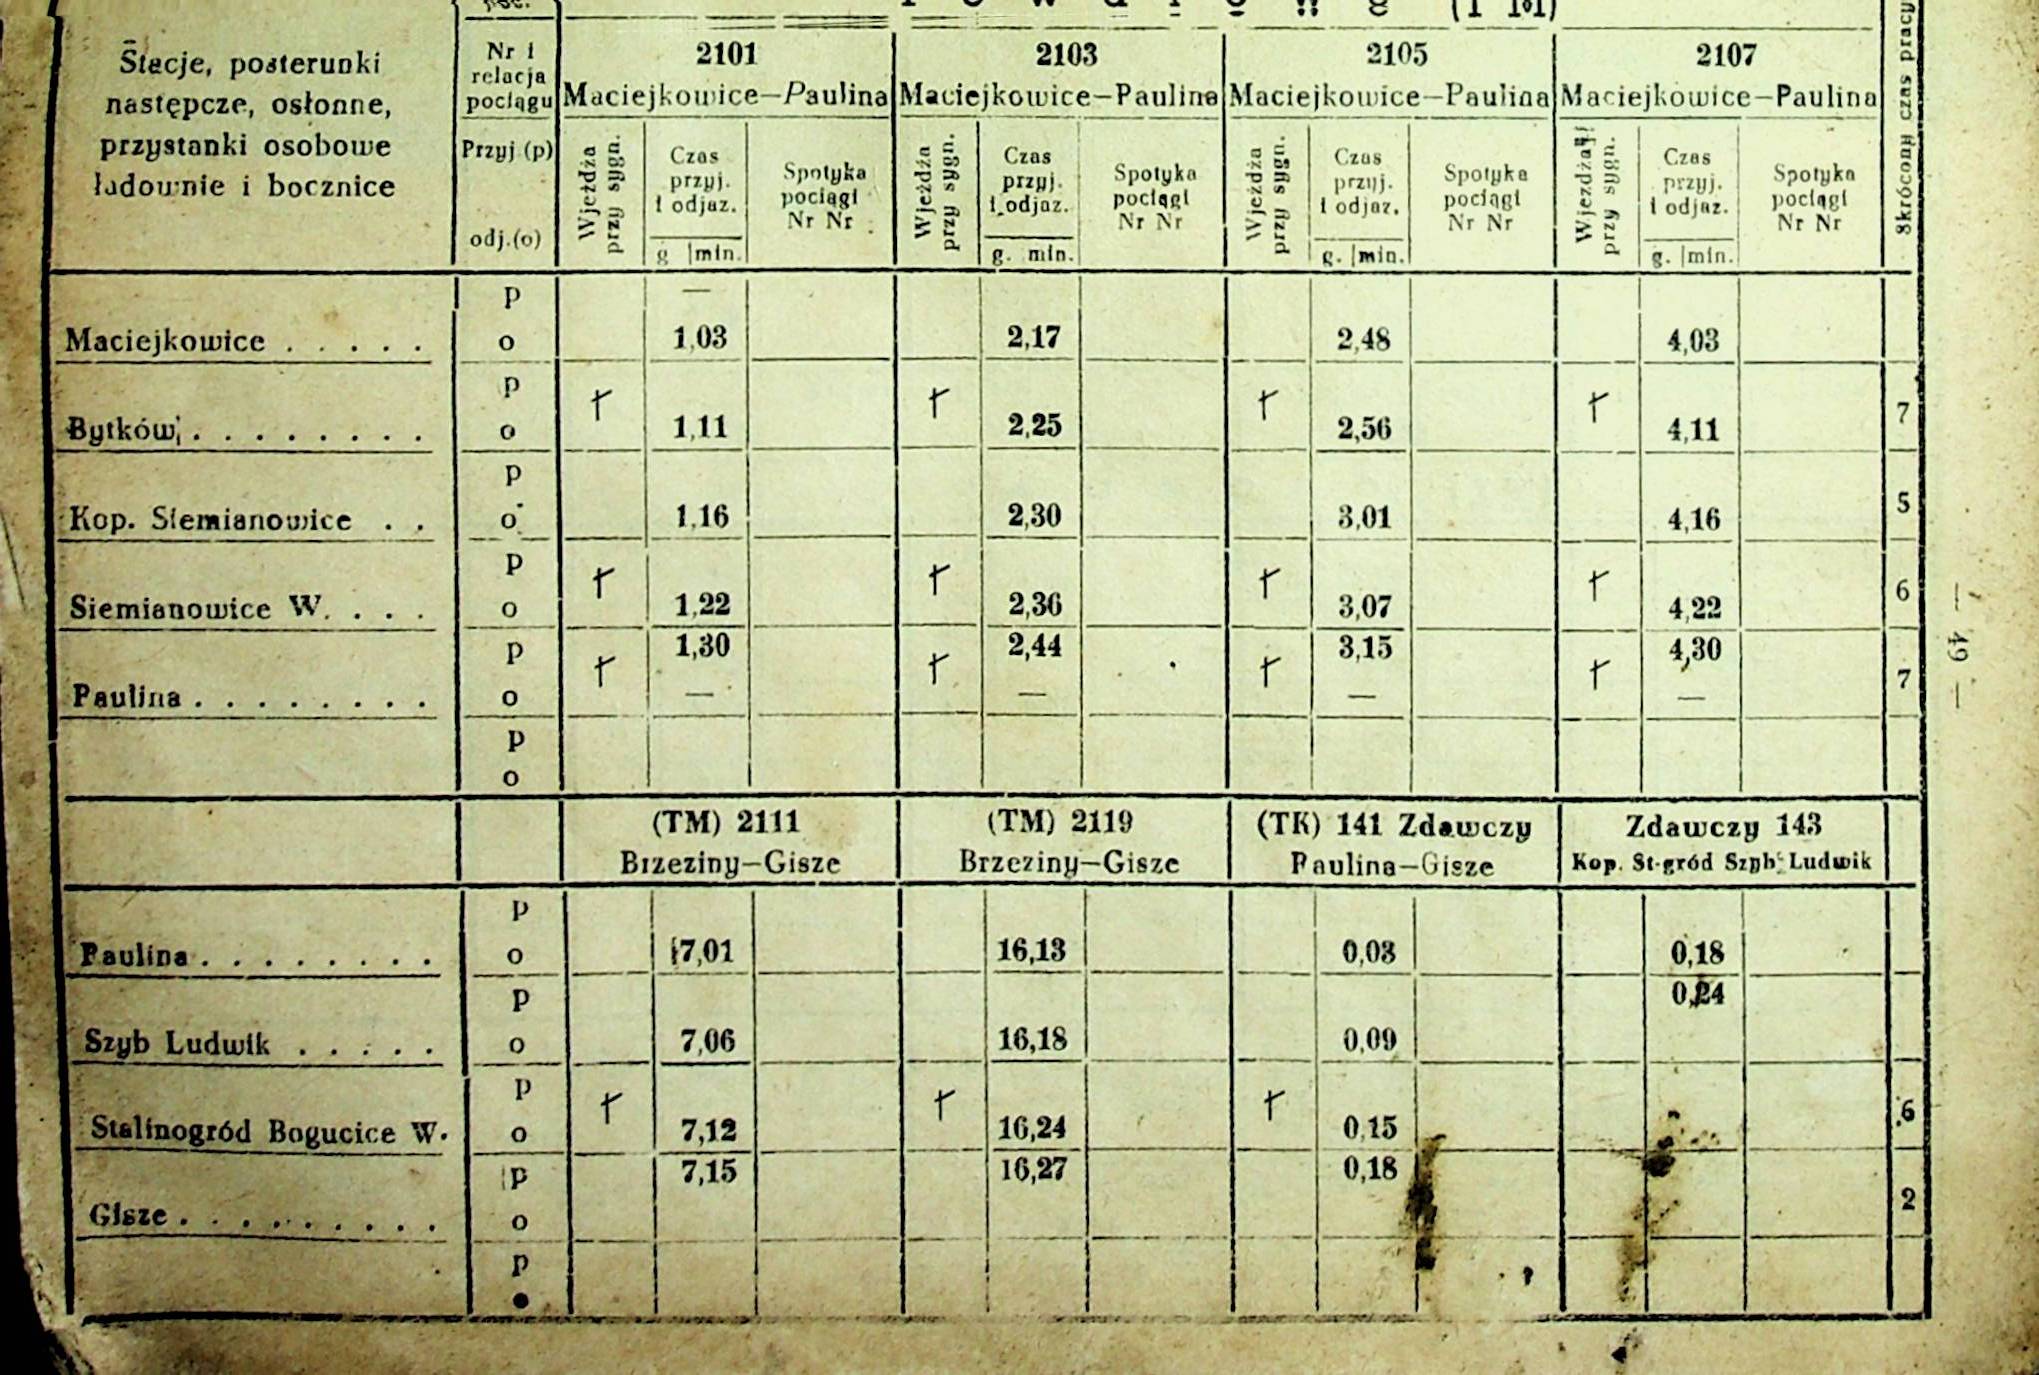 (T M)
Stacje, posterunki
następcze, osłonne,
przystanki osobowe
ładownie i bocznice
Nr i
relacja
pociągu
Przyj (p)
odj.(o)
2101
2103
2105
2107
Maciejkowice—Paulina
Maciejkowice—Paulina
Maciejkowice—Paulina
Maciejkowice—Paulina
Skrócony czas pracy
Wjeżdża
przy sygn.
Czas
przyj.
i odjaz.
g min.
Spotyka
pociągi
Nr Nr
Wjeżdża
przy sygn.
Czas
przyj.
i odjaz.
g. min.
Spotyka
pociągi
Nr Nr
Wjeżdża
przy sygn.
Czas
przyj.
i odjaz.
g. min.
Spotyka
pociągi
Nr Nr
Wjeżdża
przy sygn.
Czas
przyj.
i odjaz.
g. min.
Spotyka
pociągi
Nr Nr
p —
Maciejkowice . . . . . o 1,03 2,17 2,48 4,03
p
Bytków . . . . . . . . o 1,11 2,25 2,56 4,11 7
p
Kop. Siemianowice . . o 1,16 2,30 3,01 4,16 5
p
Siemianowice W. . . . o 1,22 2,36 3,07 4,22 6
p 1,30 2,44 3,15 4,30
Paulina . . . . . . . . o — — — — 7
p
o
— 49 —
(TM) 2111 (TM) 2119 (TK) 141 Zdawczy Zdawczy 143
Brzeziny—Gisze Brzeziny—Gisze Paulina—Gisze Kop. St-gród Szyb Ludwik
p
Paulina . . . . . . . . o 7,01 16,13 0,03 0,18
p 0,24
Szyb Ludwik . . . . . o 7,06 16,18 0,09
p
Stalinogród Bogucice W. o 7,12 16,24 0,15 6
p 7,15 16,27 0,18
Gisze . . . . . . . . . o 2
p